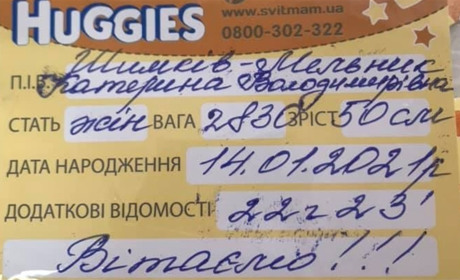 HUGGIES
www.svitmam.ua
0800-302-322
Шимків-Мельник
П.І.Б. Катерина Володимирівна
СТАТЬ жін ВАГА 2830 ЗРІСТ 50 см
ДАТА НАРОДЖЕННЯ 14.01.2021р
ДОДАТКОВІ ВІДОМОСТІ 22ч 23'
Вітаємо!!!